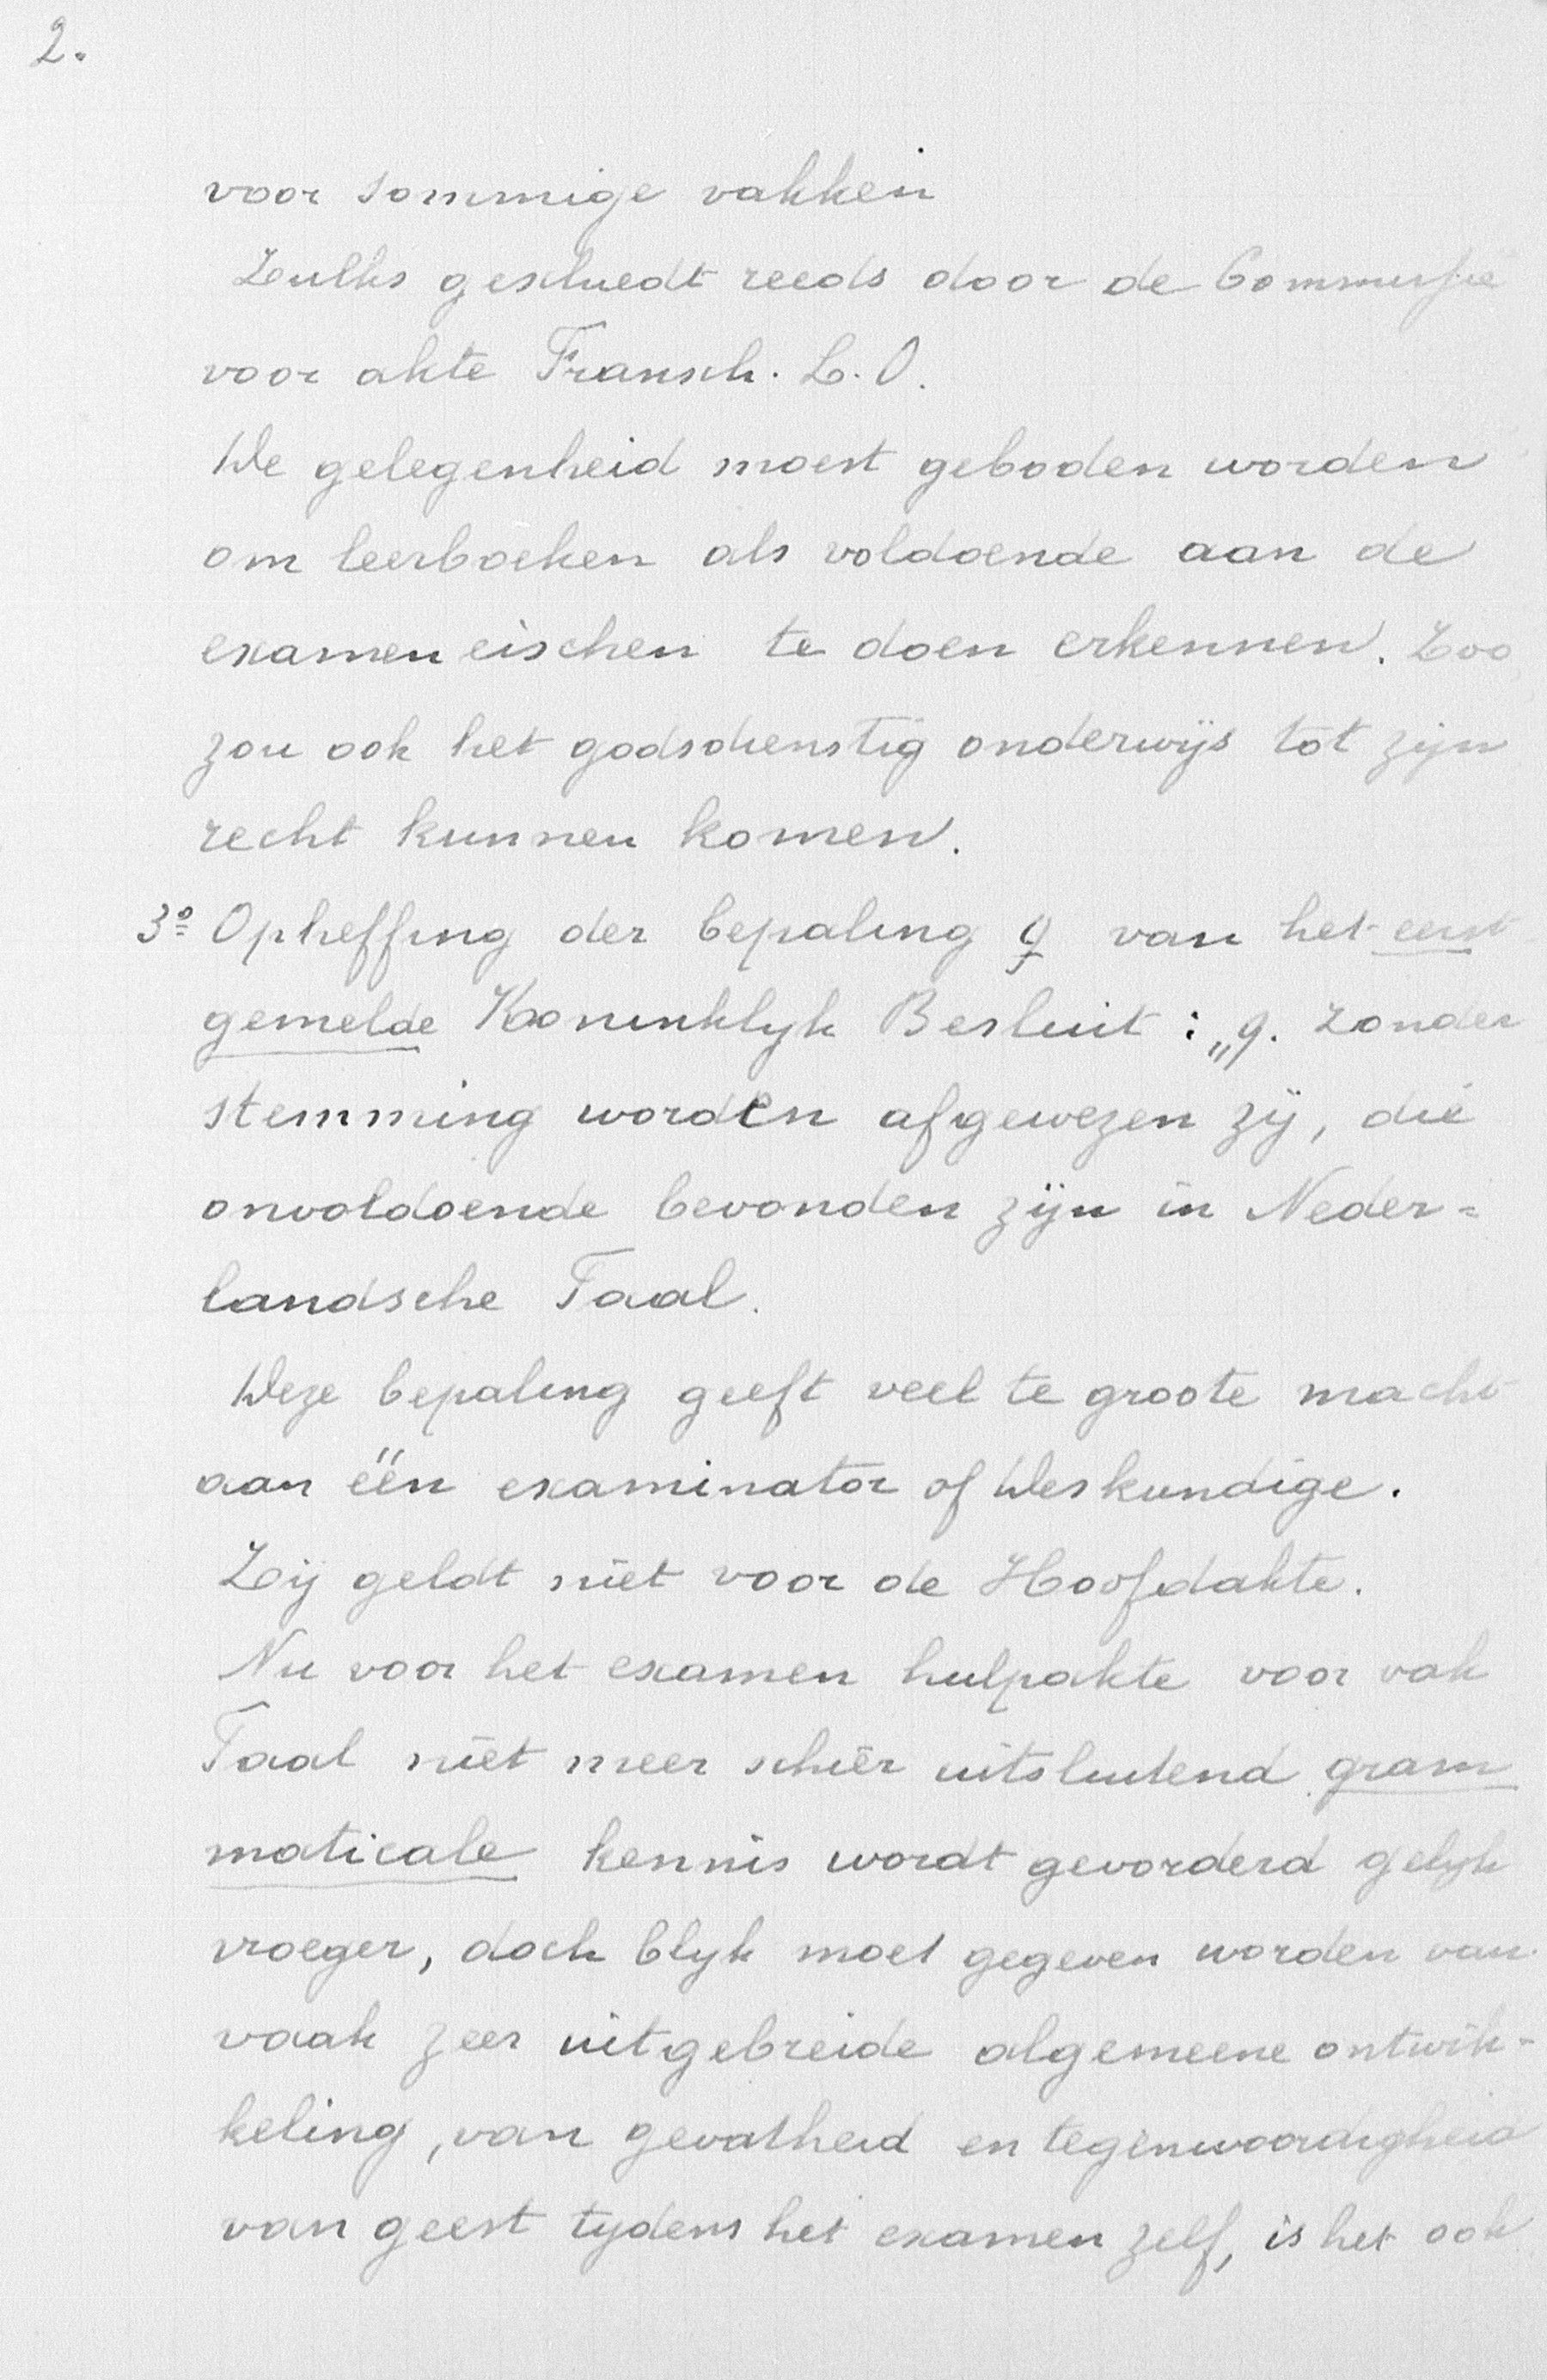 2.
voor sommige vakken
Zulks geschiedt reeds door de Commissie
voor akte Fransch. L.O.
De gelegenheid moest geboden worden
om leerboeken als voldoende aan de
exameneischen te doen erkennen. Zoo
zou ook het godsdienstig onderwijs tot zijn
recht kunnen komen.
3º Opheffing der bepaling g van het eerst
gemelde Koninklyk Besluit : „g. zonder
stemming worden afgewezen zij, die
onvoldoende bevonden zijn in Neder=
landsche Taal.
Deze bepaling geeft veel te groote macht
aan één examinator of Deskundige.
Zij geldt niet voor de Hoofdakte.
Nu voor het examen hulpakte voor vak
Taal niet meer schier uitsluitend gram
maticale kennis wordt gevorderd gelyk
vroeger, doch blyk moet gegeven worden van
vaak zeer uitgebreide algemeene ontwik-
keling, van gevatheid en tegenwoordigheid
van geest tydens het examen zelf, is het ook